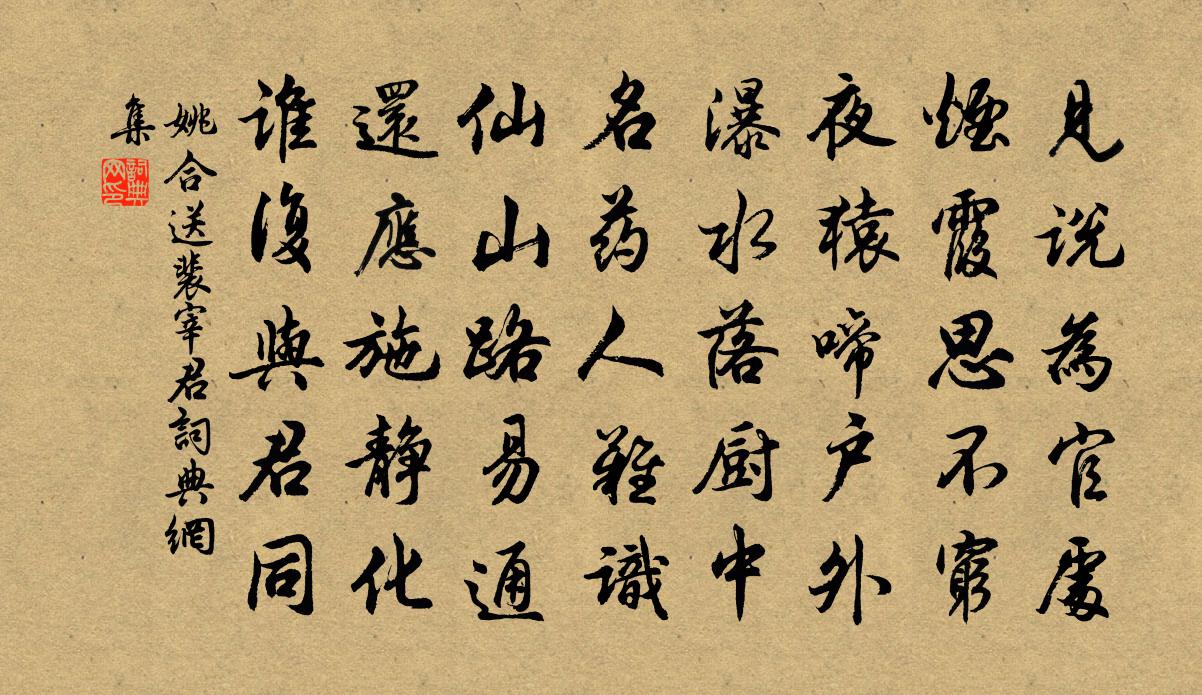 見説為官處
煙霞思不窮
夜猿啼户外
瀑水落厨中
名药人難識
仙山路易通
還應施静化
誰復與君同
姚合送裴宰君詞典網
集
詞典
网印